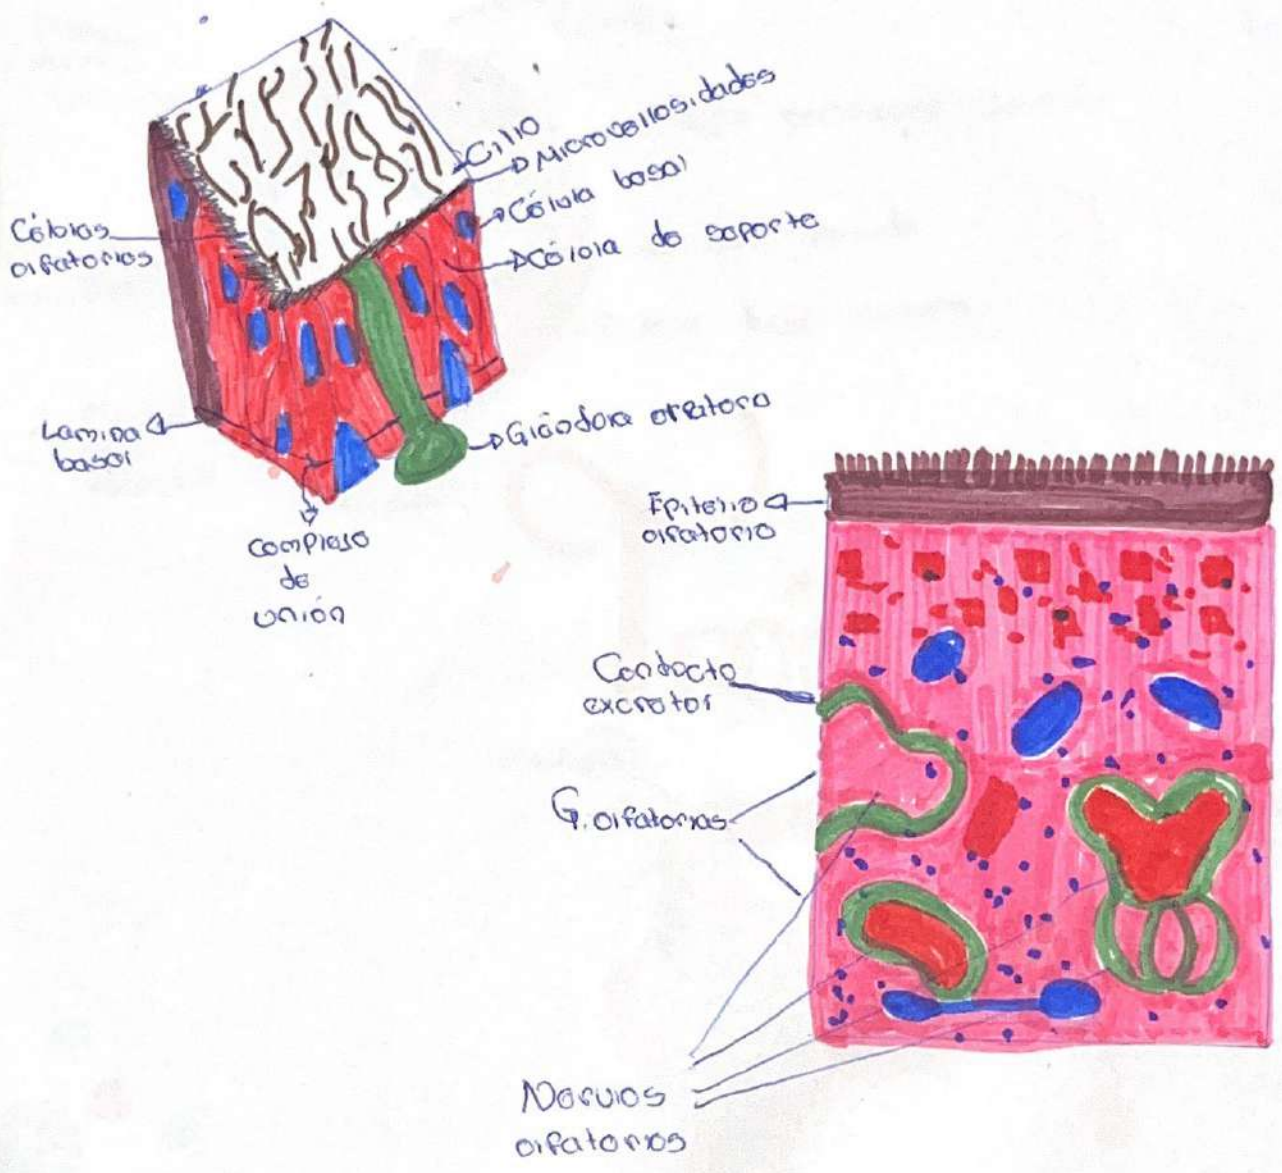 Cilio
Microvellosidades
Célula basal
Célula de soporte
Células
olfatorias
Lamina
basal
Glándora olfatora
complejo
de
unión
Epitelio
olfatorio
Conducto
excretor
G. olfatorias
Nervios
olfatorios